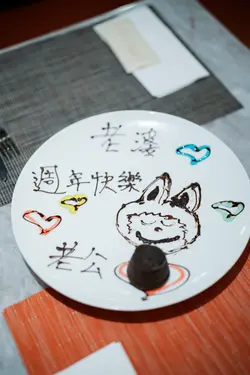 老婆
週年快樂
老公